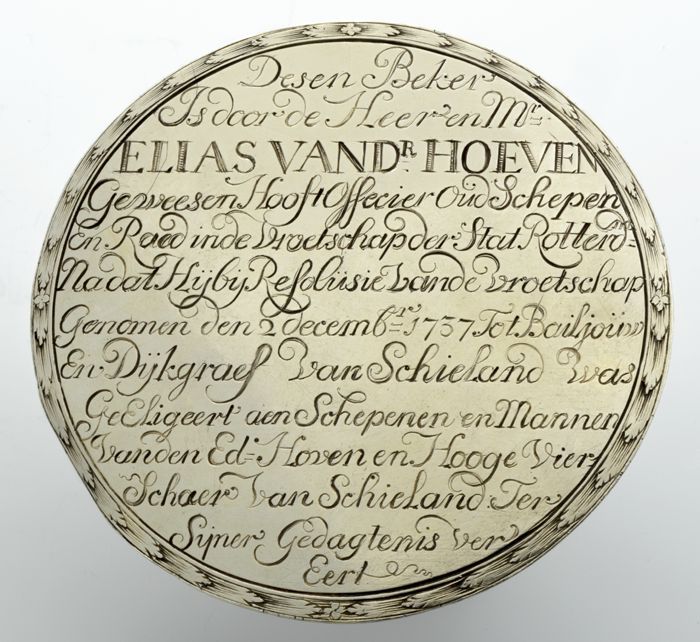 Desen Beker
Is door de Heer en Mr
ELIAS VANDR HOEVEN
Geweesen Hooft Offecier Oud Schepen
En Raed in de Vroetschap der Stat Rotterdm
Nadat Hij bij Resolusie Vande Vroetschap
Genomen den 2 decembr 1737 Tot Bailjouw
En Dijkgraef Van Schieland Was
GeEligeert aen Schepenen en Mannen
Vanden Ed: Hoven en Hooge Vier-
Schaer Van Schieland Ter
Sijner Gedagtenis Ver
Eert